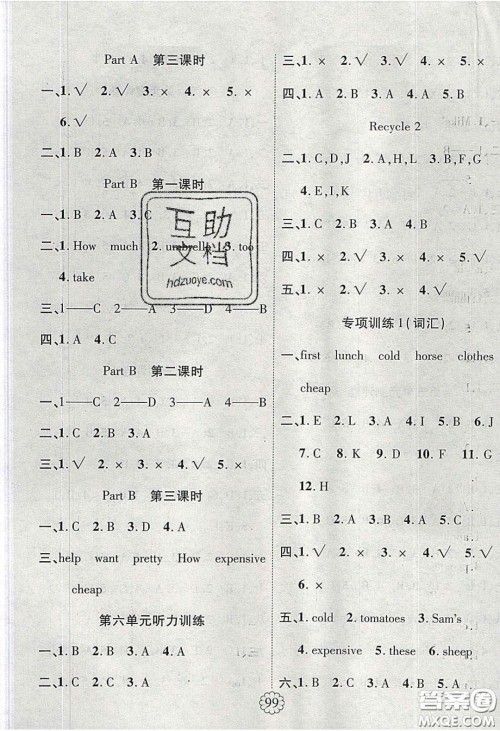 Part A 第三课时
一、1.√ 2.√ 3.× 4.× 5.×
6.√
二、1.B 2.A 3.B
Part B 第一课时
一、1.B 2.A 3.C
二、1.How much 2.umbrella 3.too
4.take
三、1——C 2——A 3——D 4——B
四、1.A 4.C
Part B 第二课时
一、1——C 2——D 3——A 4——B
二、1.C 2.B 3.A
三、1.√ 2.× 3.× 4.√ 5.×
Part B 第三课时
一、1.C 2.B 3.D 4.A
三、help want pretty How expensive
cheap
第六单元听力训练
一、1.B 2.B 3.A 4.B
二、1.C 2.C 3.A 4.A
三、1.× 2.√ 3.√ 4.× 5.×
四、1.B 2.A 3.C 4.A 5.B
Recycle 2
二、1.C,D,J 2.A,H 3.B,F,G
4.E,I,K
三、1.B 2.B 3.A 4.B 5.A
四、1.× 2.√ 3.× 4.√ 5.×
五、1.× 2.× 3.√ 4.× 5.√
专项训练1(词汇)
一、first lunch cold horse clothes
cheap
二、1.E 2.L 3.A 4.I 5.J 6.B
7.F 8.K 9.D 10.C 11.G
12.H
三、1.C 2.C 3.B 4.A 5.A
四、1.√ 2.× 3.× 4.× 5.√
6.×
五、1.cold 2.tomatoes 3.Sam's
4.expensive 5.these 6.sheep
六、1.B 2.C 3.A 4.B
99
互助
文档
hdzuoye.com
答案圈
MXQE.COM